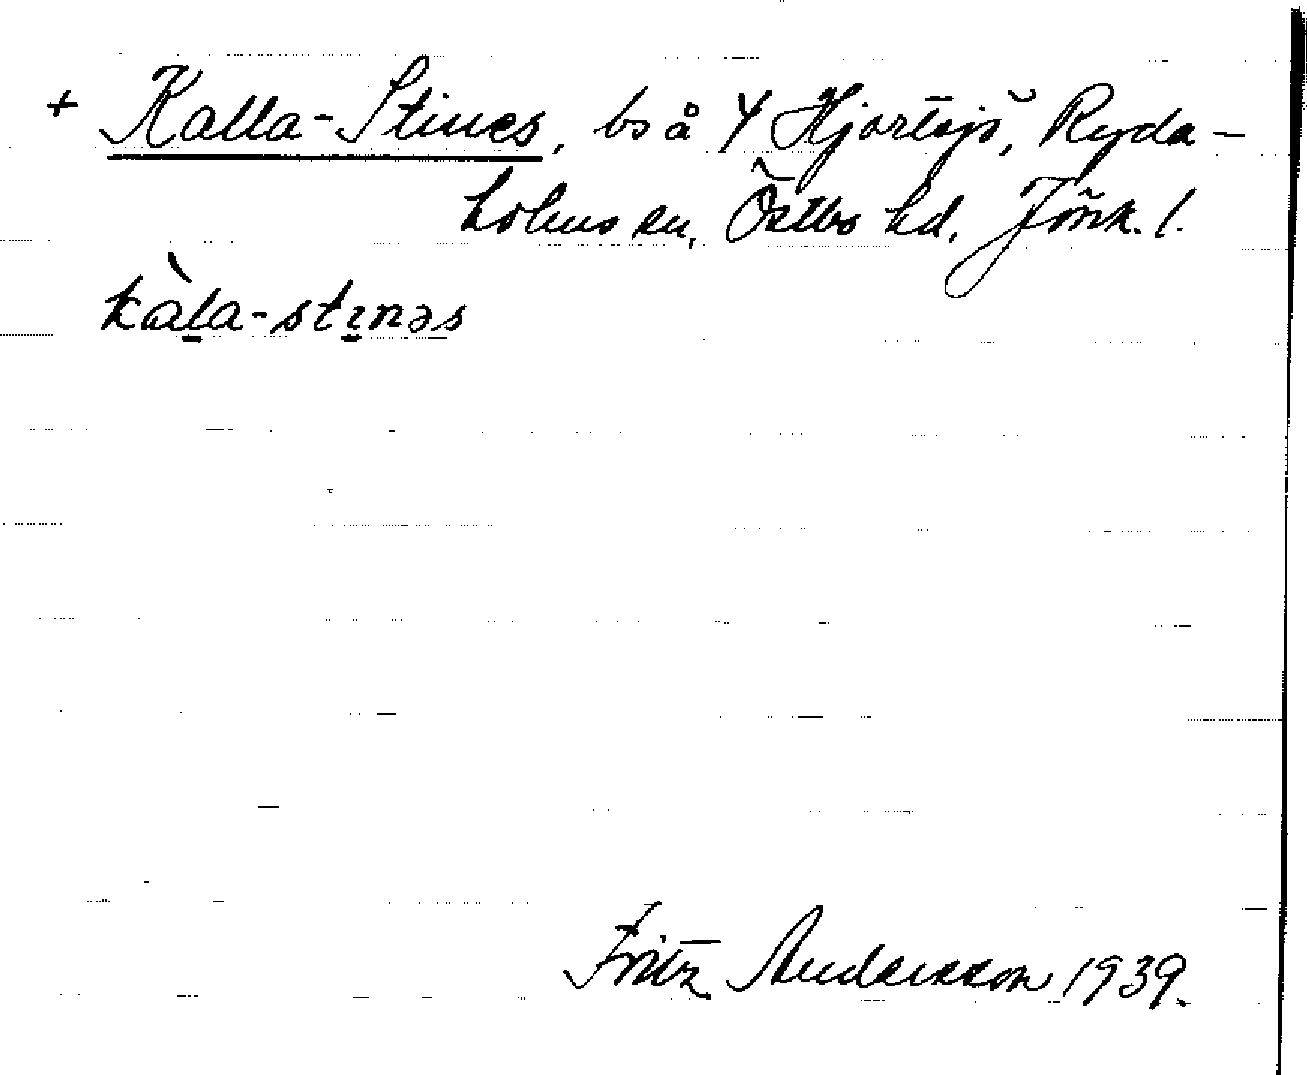 + Kalla-Stines, bs å Y Hjortsjö, Ryda-
holms sn, Östbo hd, Jönk. l.
kàla-stɪnəs
Fritz Andersson 1939.